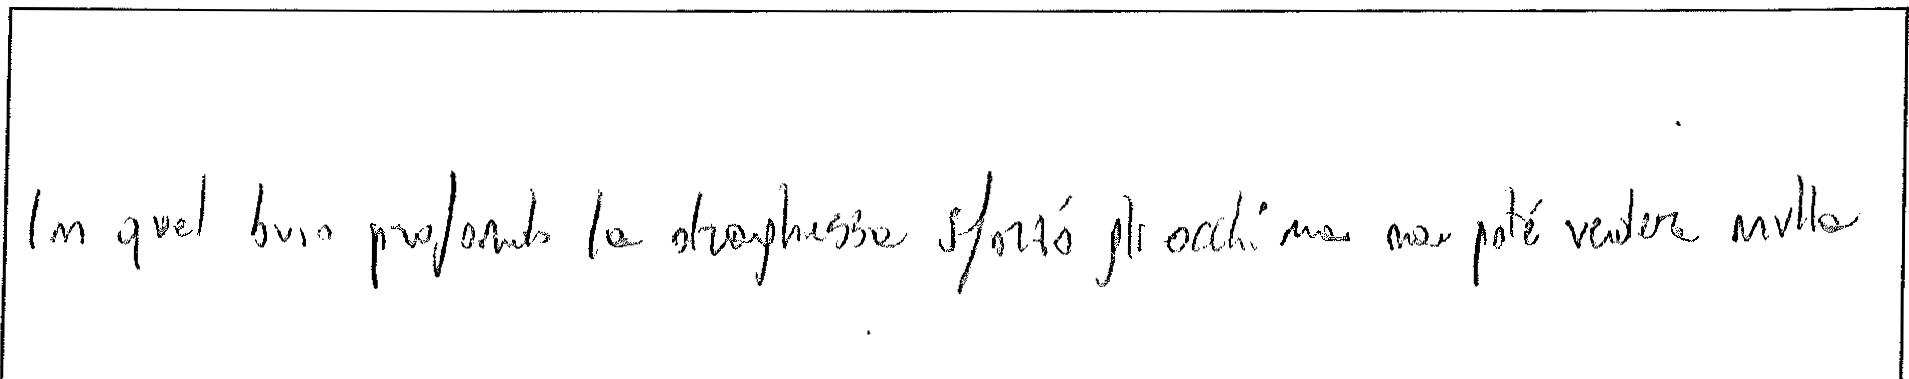 In quel buio profondo la draghessa sforzó gli occhi ma non poté vedere nulla